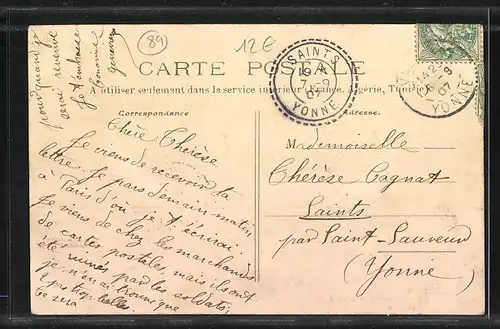 89
12 €
CARTE POSTALE
A utiliser seulement dans le service intérieur (France, Algérie, Tunisie
Correspondance
Adresse
SAINTS
7-9
07
YONNE
6-9
07
YONNE
pour quand je
serai revenue
Je t'embrasse
Chère Thérèse
Je viens de recevoir ta
lettre. Je pars demain matin
à Paris d'où je t'écrirai.
Je viens de chez les marchands
de cartes postales, mais ils ont
été ruinés par les soldats;
je n'en ai trouvé que
2 pas trop belles.
Ce sera
Mademoiselle
Thérèse Cognat
Saints
par Saint-Sauveur
(Yonne)